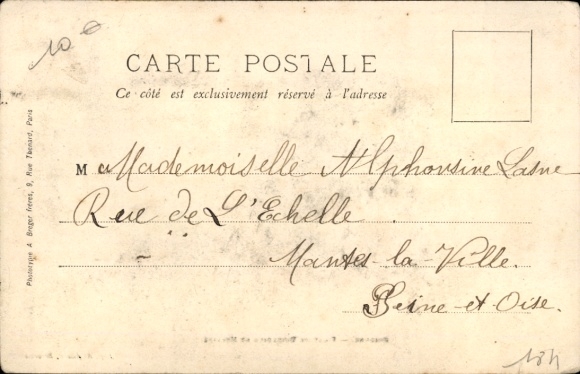 10 €
CARTE POSTALE
Ce côté est exclusivement réservé à l'adresse
M Mademoiselle Alphonsine Lasne
Rue de L'Echelle
Mantes-la-Ville.
Seine-et-Oise.
Phototype A Breger frères, 9, Rue Thénard, Paris